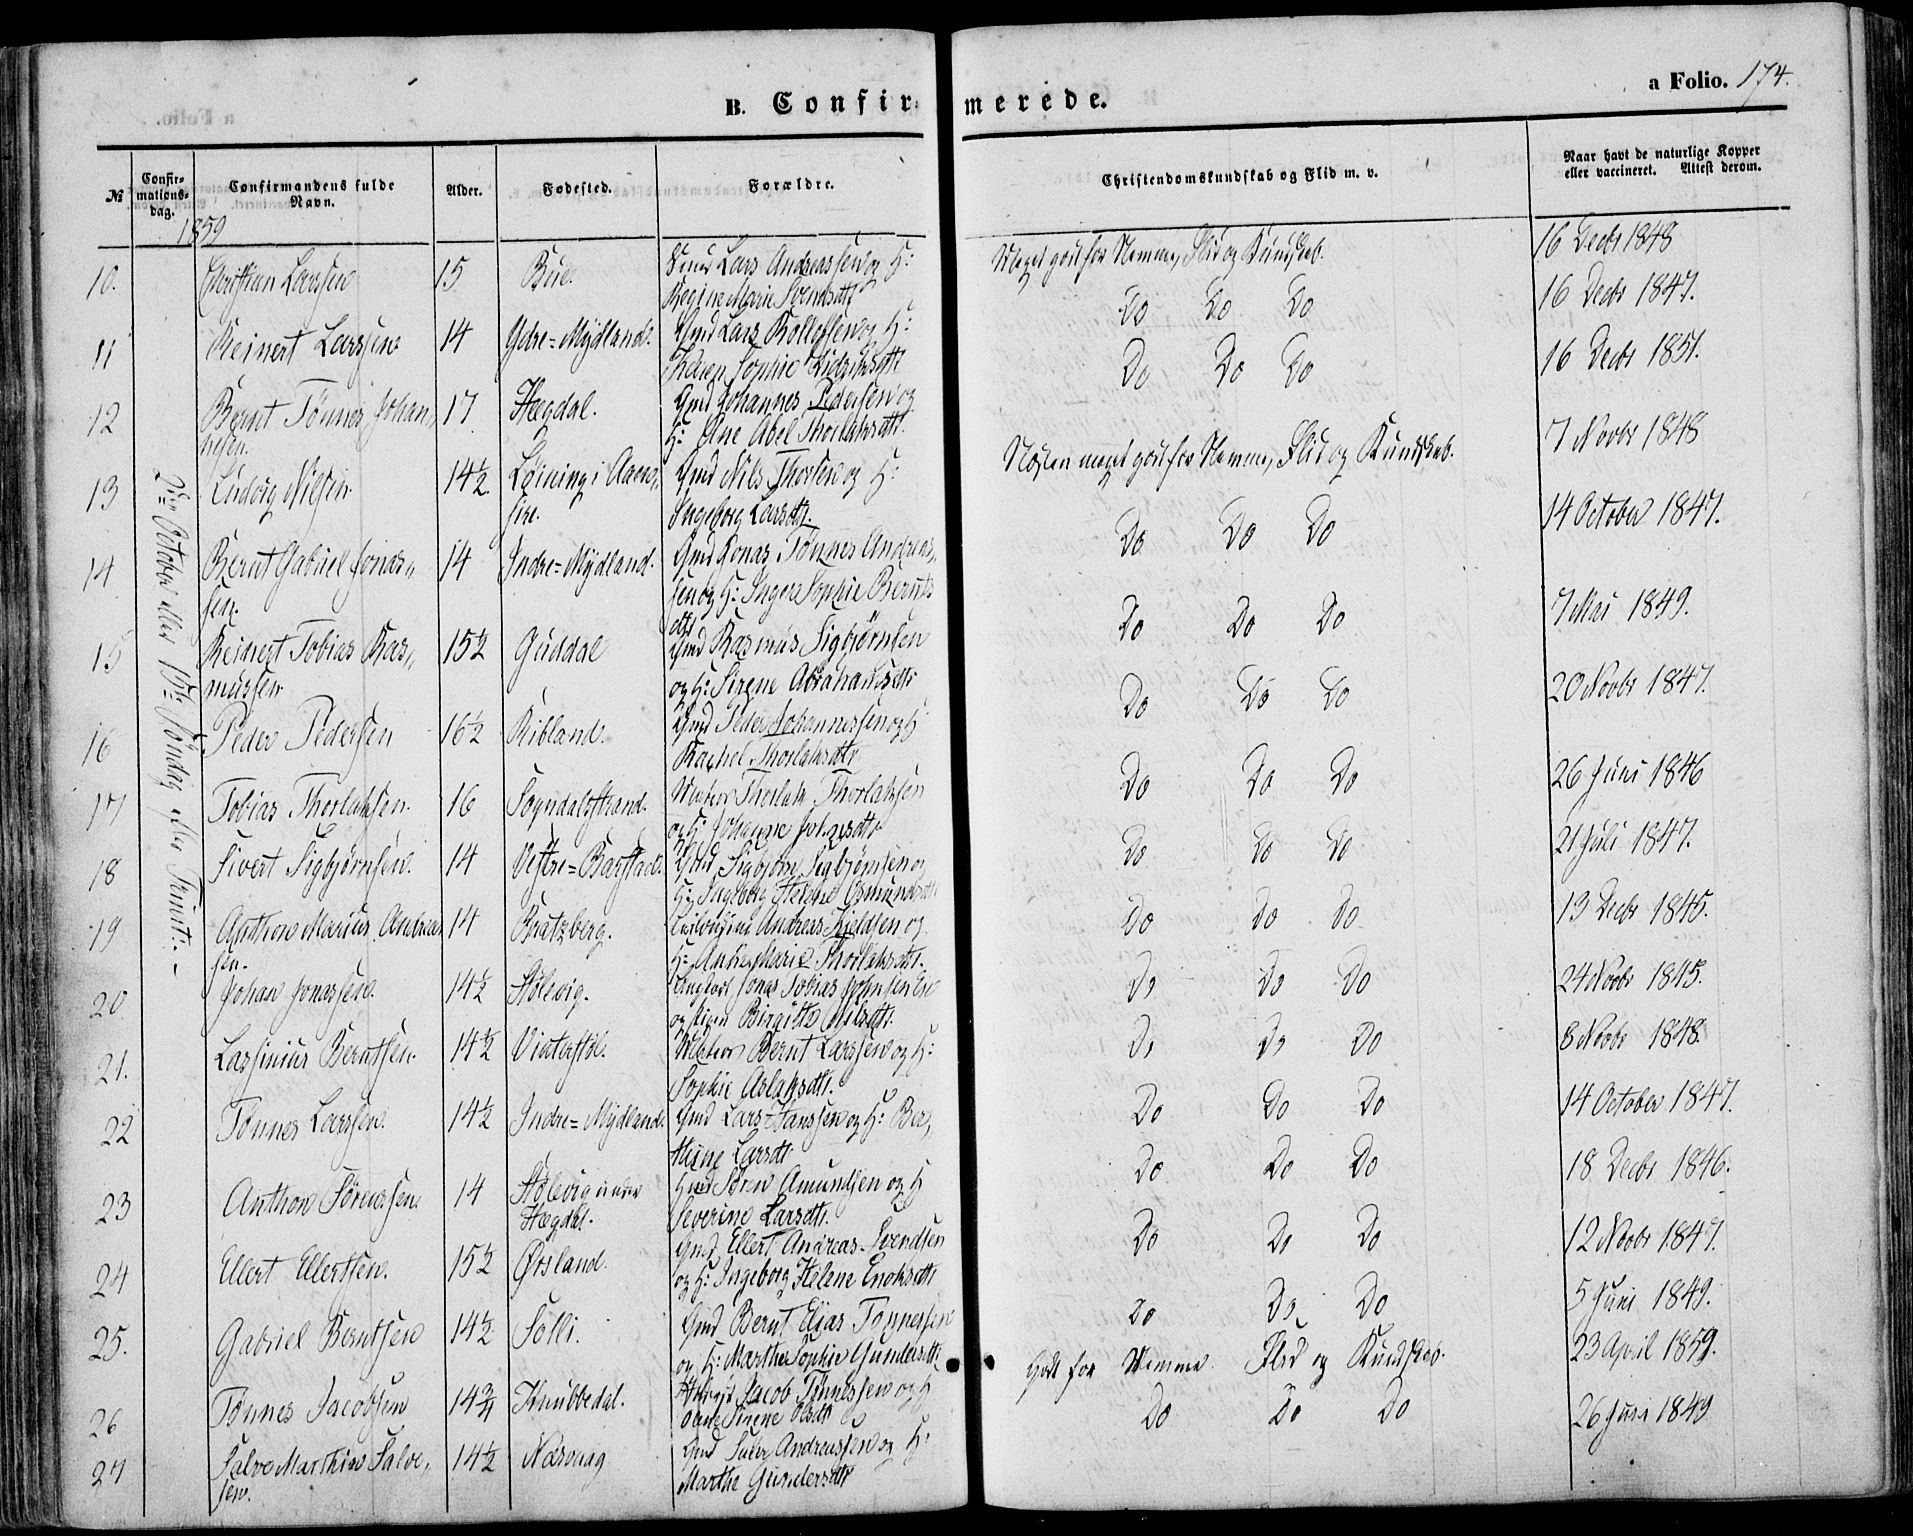 a Folio. 174.
B. Confirmerede.
№
Confirmationsdag.
Confirmandens fulde Navn.
Alder.
Fødested.
Forældre.
Christendomskundskab og Flid m. v.
Naar havt de naturlige Kopper eller vaccineret. Attest derom.
1859
2den October eller 15de Søndag efter Trinit:
10. Christian Larssen 15 Bue. Lars Andreassen og H:
Regine Marie Svendsdtr
Meget godt for Nemme, Flid og Kundskab. 16 Decbr 1848
11 Reinert Larssen 14 Ydre=Mydland. Gmd Lars Rolfssen og H:
Sophie Didriksdtr
Do Do Do 16 Decbr 1847.
12 Bernt Tønnes Johan„ 17 Hægdal. Gmd Johannes Pedersen og
nesen. H: Ane Abel Thorlaksdtr.
Do Do Do 16 Decbr 1851.
13 Ludvig Nilsen 14½ Løining i Aaena„ Gmd Nils Thorsen og H:
sire. Ingeborg Larsdtr.
Næsten meget godt for Nemme, Flid og Kundskab. 7 Novbr 1848
14 Bernt Gabriel Jonas„ 14 Indre=Mydland. Gmd Jonas Tønnes Andreas„
sen. sen og H: Inger Sophie Bernts
dtr
Do Do Do 14 October 1847.
15 Reinert Tobias Ras„ 15½ Guddal Gmd Rasmus Sigbjørnsen
mussen og H: Sirene Abrahamsdtr
Do Do Do 7 Mai 1849.
16 Peder Pedersen 16½ Ribland. Gmd Peder Johannessen og H
Rachel Thorlaksdtr
Do Do Do 20 Novbr 1847.
17 Tobias Thorlaksen. 16 Sogndalsstrand. Thorlak Thorlaksen
og H: Johanne
Do Do Do 26 Juni 1846
18 Sivert Sigbjørnsen. 14 Vestre=Barstad. Gmd Sigbjørn Sigbjørnsen og
H: Ingeborg Helene Osmundsdtr
Do Do Do 21 Juli 1847.
19 Anthon Marius Andreas 14 Bratzberg. Andreas Kjeldsen og
sen. H: Anne Marie Thorlaksdtr.
Do Do Do 13 Decbr 1845.
20 Johan Jonassen. 14½ Stølevig. Jonas Tobias Johnsen
og Birgitte Nilsdtr.
Do Do Do 24 Novbr 1845.
21. Lassinius Berntsen. 14½ Vinterstøl. Bernt Larssen og H:
Sophie Aslaksdtr.
Do Do Do 8 Novbr 1848.
22 Tønnes Larssen. 14½ Indre=Mydland. Gmd Lars Hanssen og H: Ber„
thine Larsdtr
Do Do Do 14 October 1847.
23 Anthon Sørenssen. 14 Stølevig under Søren Amundsen og H
Hægdal. Severine Larsdtr.
Do Do Do 18 Decbr 1846.
24 Ellert Ellertsen. 15½ Ørsland. Gmd Ellert Andreas Svendsen
og H: Ingeborg Helene Enoksdtr
Do Do Do 12 Novbr 1847.
25. Gabriel Berntsen 14½ Solli. Gmd Bernt Elias Tønnessen
og H: Marthe Sophie Gundersdtr
Do Do Do 5 Juni 1849.
26 Tønnes Jacobsen 14¾ Knubbedal. Jacob Tønnessen og H
Sirene Olsdtr
Godt for Nemme. Flid og Kundskab. 23 April 1859.
27 Salve Marthin Salve„ 14½ Nesvaag Gmd Salve Andreassen og H:
sen. Marthe Gundersdtr
Do Do Do 26 Juni 1849